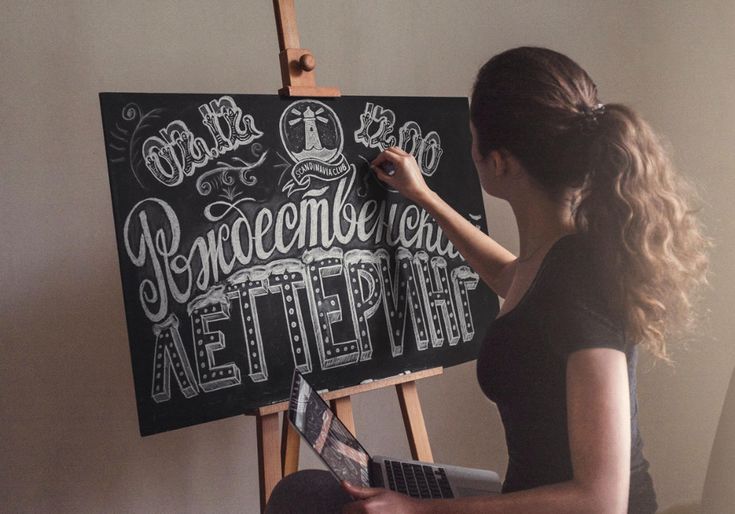 02.12 12.00
SCANDINAVIA CLUB
Рождественский
ЛЕТТЕРИНГ